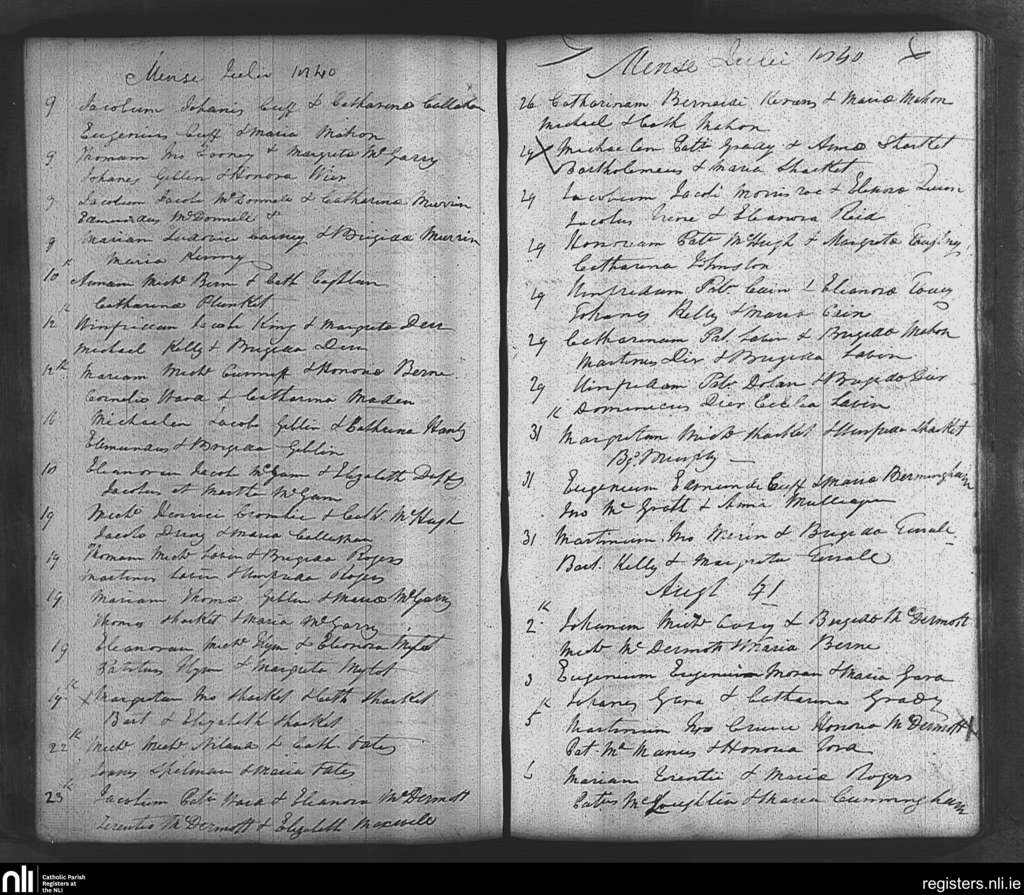 Mense Julii 1840
9 Jacobum Johanis Cuff & Catharina Callahan
Eugenius Cuff & Maria Mahon
9 Thomam Jno Tooney & Margreta McGarry
Johanes Giblin & Honora Wier
9 Jacobum Jacobi McDonnell & Catharina Murrin
Edmundus McDonnell &
9 Mariam Ludovici Carney & Brigida Murrin
Maria
10 K Annam Michl Bern & Cath
Catharina Plunket
12 K Winfridam Jacobi King & Margreta Deir
Michael Kelly & Brigida Dir
12 K Mariam Michl & Honora Berne
Cornelis Ward & Catharina Maden
16 Michaelem Jacobi Giblin & Catherina Hanly
Edmundus & Brigida Giblin
10 Eleanoram Jacob McGann & Elizabeth Duffy
Jacobus et Martha McGann
19 Michl Denrici Crombie & Cath McHugh
Jacobo & Maria Callaghan
19 Thomam Michl Lavin & Brigida Rogers
Martinus Lavin & Winfrida Rogers
19 Mariam Thoma Giblin & Maria McGarry
Thomas Sharket & Maria McGarry
19 Eleanoram Michl Flynn & Eleonora
Flynn & Margreta
19 K X Margretan Jno Sharket & Cath Sharket
Bart & Elizabeth Sharket
22 K Michl Michl & Cath Fates
Spelman & Maria Fates
23 K Jacobum Patr Ward & Eleanora McDermott
Terentio McDermott & Elizabeth Maxwell
Mense Julii 1840
26 Catharinam Bernardi Kerans & Maria Mahon
Michael & Cath Mahon
29 X Michaelem Patr Grady & Anna Sharket
Bartholemeus & Maria Sharket
29 Jacobum Jacobi Morris roe & Elenora Quinn
Jacobus & Eleanora Reid
29 Honoriam Patr McHugh & Margreta
Catharina Johnston
29 Winfridam Patr Cain & Eleanora
Johanes Kelly & Maria Cain
29 Catharinam Pat Lavin & Brigida Mahon
Martinus Dir & Brigida Lavin
29 Winfridam Patr Dolan & Brigida Dier
K Dominicus Dier Cecilia Lavin
31 Margretam Michl Sharket & Winfrida Sharket
Murphy
31 Eugenium Edmundi Cuff & Maria Bermingham
Jno McGrath & Anna Mulligan
31 Martinum Jno & Brigida Farrall
Bart Kelly & Margreta Farrall
Augt 41
K
2 Johanem Michl Casey & Brigida McDermott
Michl McDermott & Maria Berne
3 Eugenium Eugenius Moran & Maria Gara
K Johanes Gara & Catharina Grady
5 Martinum Jno Honora McDermott X
Pat McManus & Honora
6 Mariam Terentii & Maria Rogers
Patrus McLoughlin & Maria Cunningham
nli Catholic Parish
Registers at
the NLI
registers.nli.ie